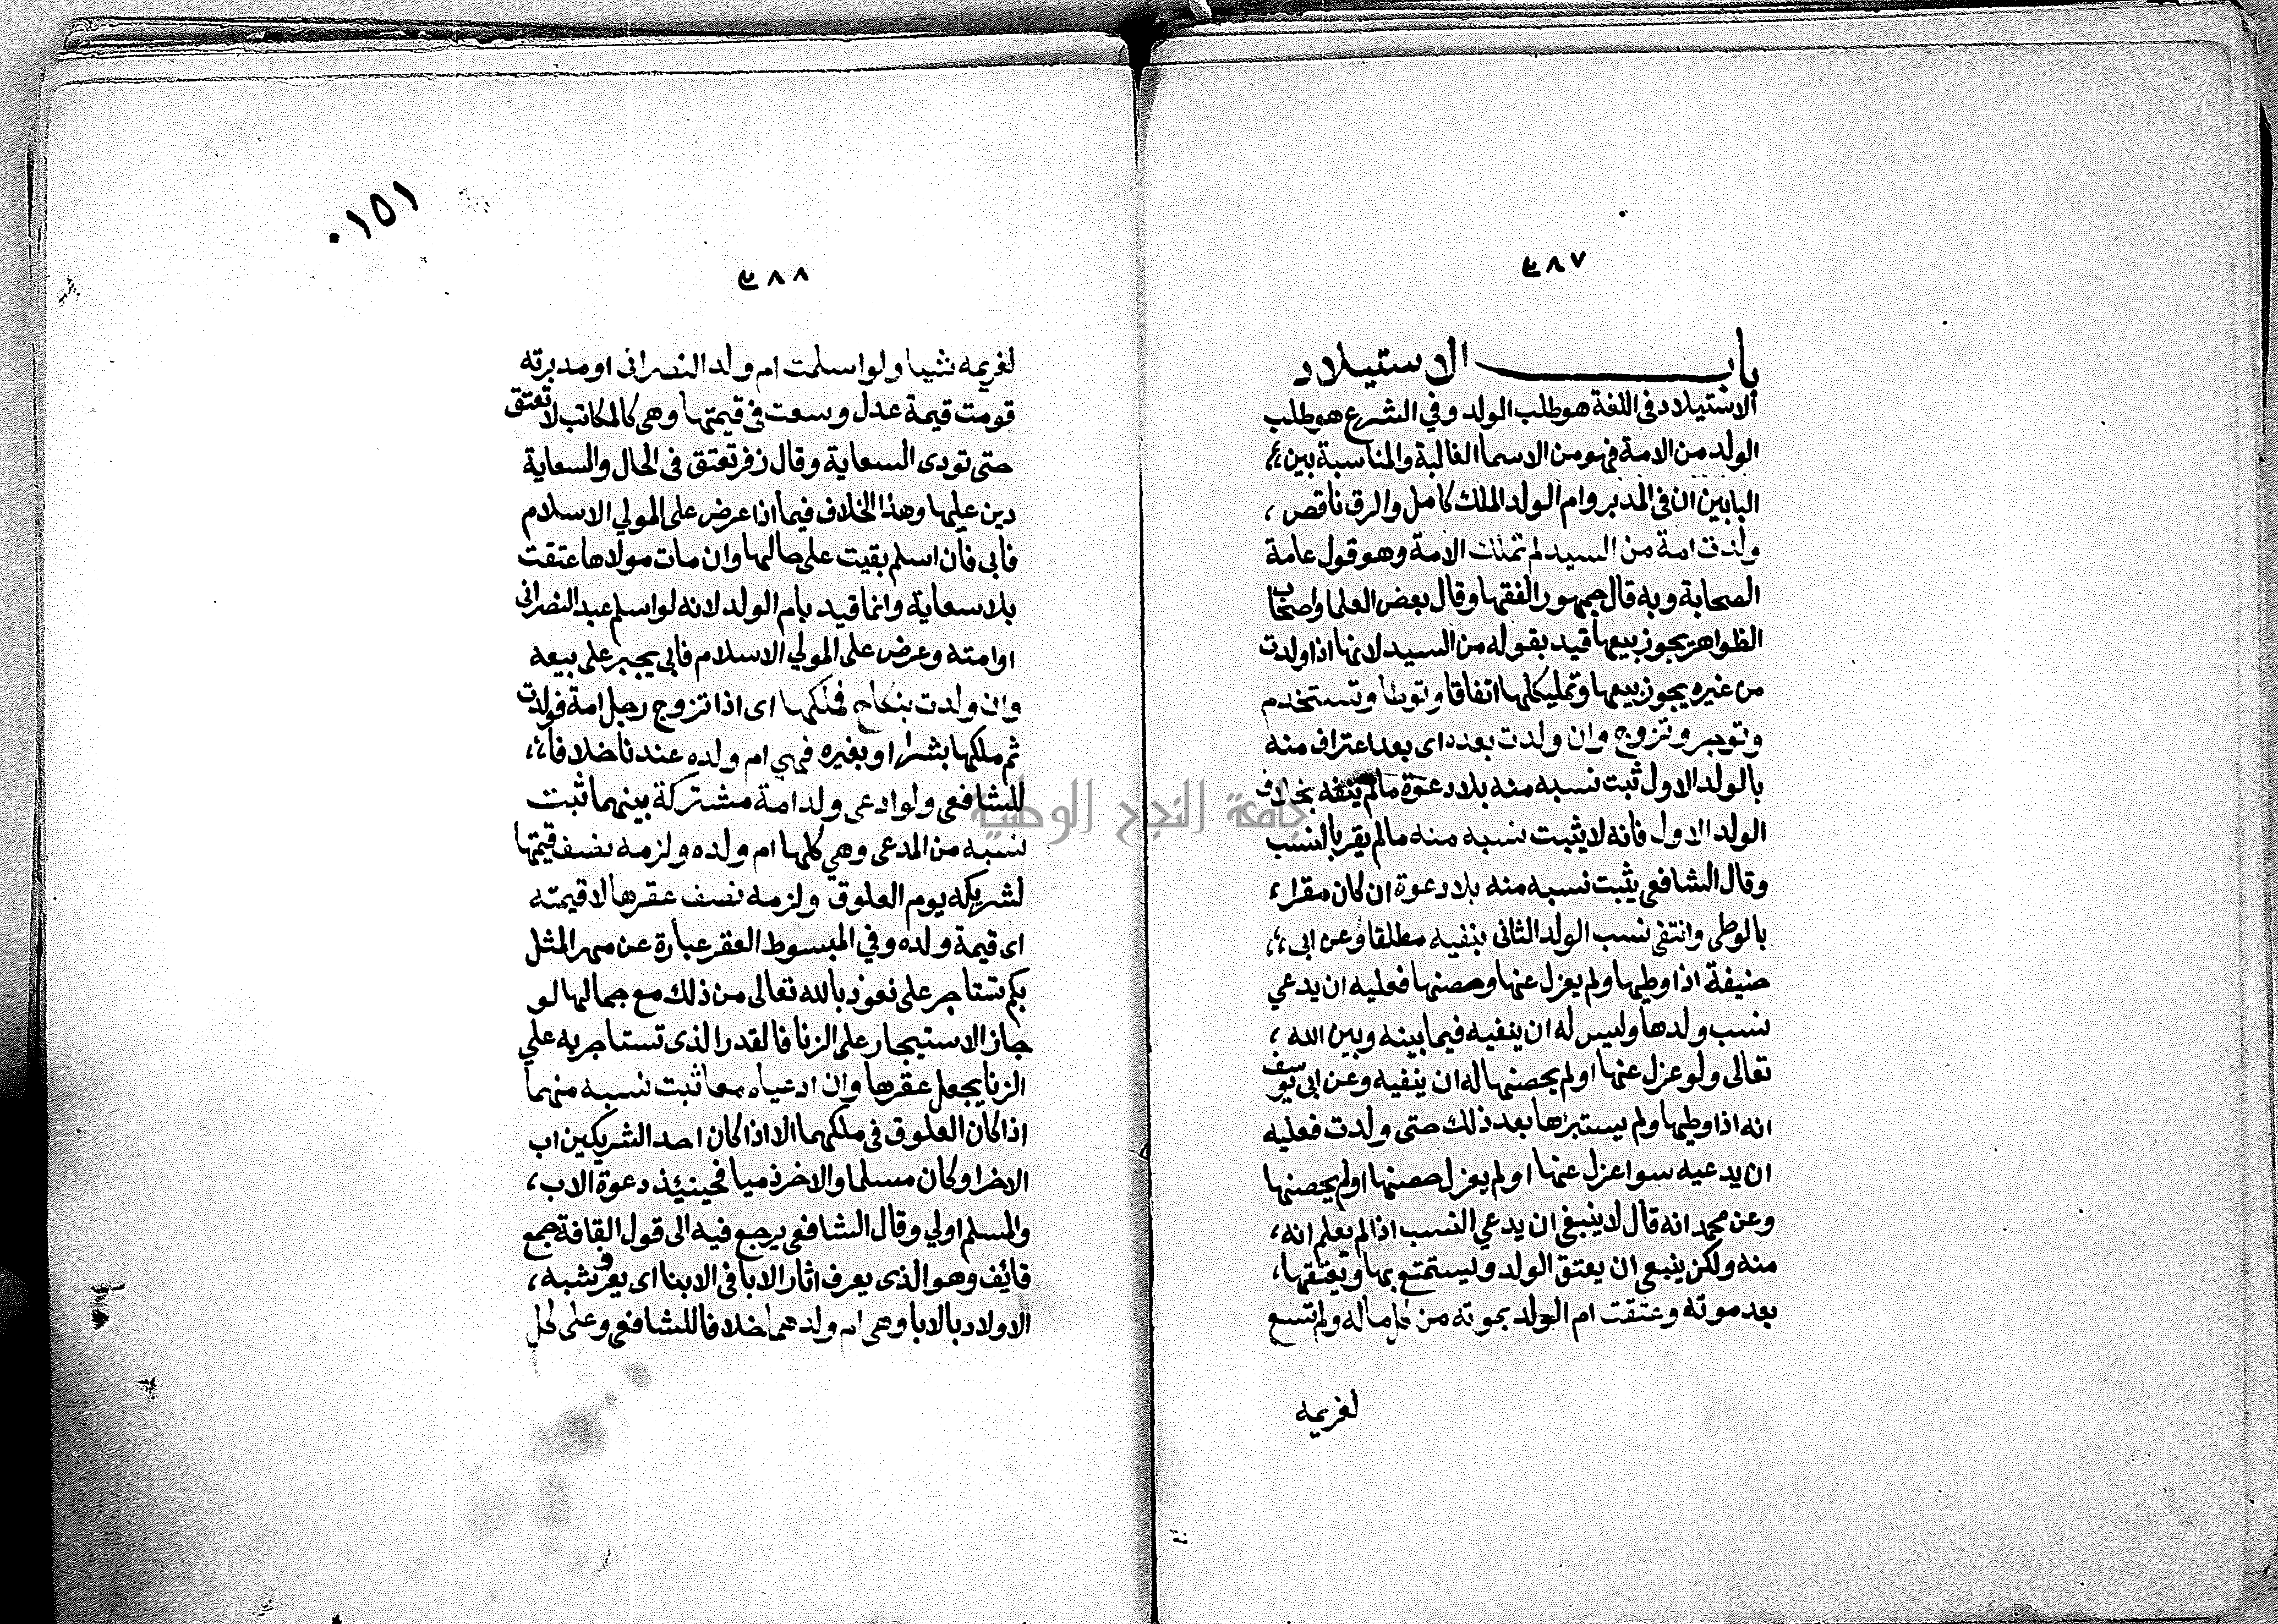 ٤٨٧
باب الاستيلاد
الاستيلاد فى اللغة هو طلب الولد وفي الشرع هو طلب
الولد من الامة فهو من الاسما الغالبة والمناسبة بين
البابين ان فى المدبر وام الولد الملك كامل والرق ناقص ،
ولدت امة من السيد لم تملك الامة وهو قول عامة
الصحابة وبه قال جمهور الفقها وقال بعض العلما واصحاب
الظواهر يجوز بيعها قيد بقوله من السيد لانها اذا ولدت
من غيره يجوز بيعها وتمليكها اتفاقا وتوطا وتستخدم
وتوجر وتزوج وان ولدت بعده اى بعد اعتراف منه
بالولد الاول ثبت نسبه منه بلا دعوة مالم ينفه بخلاف
الولد الاول فانه لا يثبت نسبه منه مالم يقر بالنسب
وقال الشافعى يثبت نسبه منه بلا دعوة ان كان مقرا
بالوطى وانتفى نسب الولد الثانى بنفيه مطلقا وعن ابى
حنيفة اذا وطيها ولم يعزل عنها وحصنها فعليه ان يدعي
نسب ولدها وليس له ان ينفيه فيما بينه وبين الله ،
تعالى ولو عزل عنها او لم يحصنها له ان ينفيه وعن ابى يوسف
انه اذا وطيها ولم يستبرئها بعد ذلك حتى ولدت فعليه
ان يدعيه سوا عزل عنها او لم يعزل حصنها او لم يحصنها
وعن محمد انه قال لا ينبغى ان يدعي النسب اذا لم يعلم انه ،
منه ولكن ينبغى ان يعتق الولد ويستمتع بها ويعتقها ،
بعد موته وعتقت ام الولد بموته من كل ماله ولم تسع
لغريمه
١٥١٠
٤٨٨
لغريمه شيا ولو اسلمت ام ولد النصرانى او مدبرته
قومت قيمة عدل وسعت فى قيمتها وهى كالمكاتب لا تعتق
حتى تودى السعاية وقال زفر تعتق فى الحال والسعاية
دين عليها وهذا الخلاف فيما اذا عرض على المولي الاسلام
فابى فان اسلم بقيت على حالها وان مات مولاها عتقت
بلا سعاية وانما قيد بام الولد لانه لو اسلم عبد النصرانى
او امته وعرض على المولي الاسلام فابى يجبر على بيعه
وان ولدت بنكاح فملكها اى اذا تزوج رجل امة فولدت
ثم ملكها بشرا او بغيره فهي ام ولده عندنا خلافا
للشافعى ولو ادعى ولد امة مشتركة بينهما ثبت
نسبه من المدعى وهي كلها ام ولده ولزمه نصف قيمتها
لشريكه يوم العلوق ولزمه نصف عقرها لا قيمته
اى قيمة ولده وفي المبسوط العقر عبارة عن مهر المثل
بكم تستاجر على نعوذ بالله تعالى من ذلك مع جمالها لو
جاز الاستيجار على الزنا فالقدر الذى تستاجر به علي
الزنا يجعل عقرها وان ادعياه معا ثبت نسبه منهما
اذا كان العلوق فى ملكهما الا اذا كان احد الشريكين اب
الاخر او كان مسلما والاخر ذميا فحينيئذ دعوة الاب ،
والمسلم اولي وقال الشافعى يرجع فيه الى قول القافة جمع
قائف وهو الذى يعرف اثار الابا فى الابنا اى يعرف شبه ،
الاولاد بالابا وهى ام ولدهما خلافا للشافعى وعلى كل
جامعة النجاح الوطنية